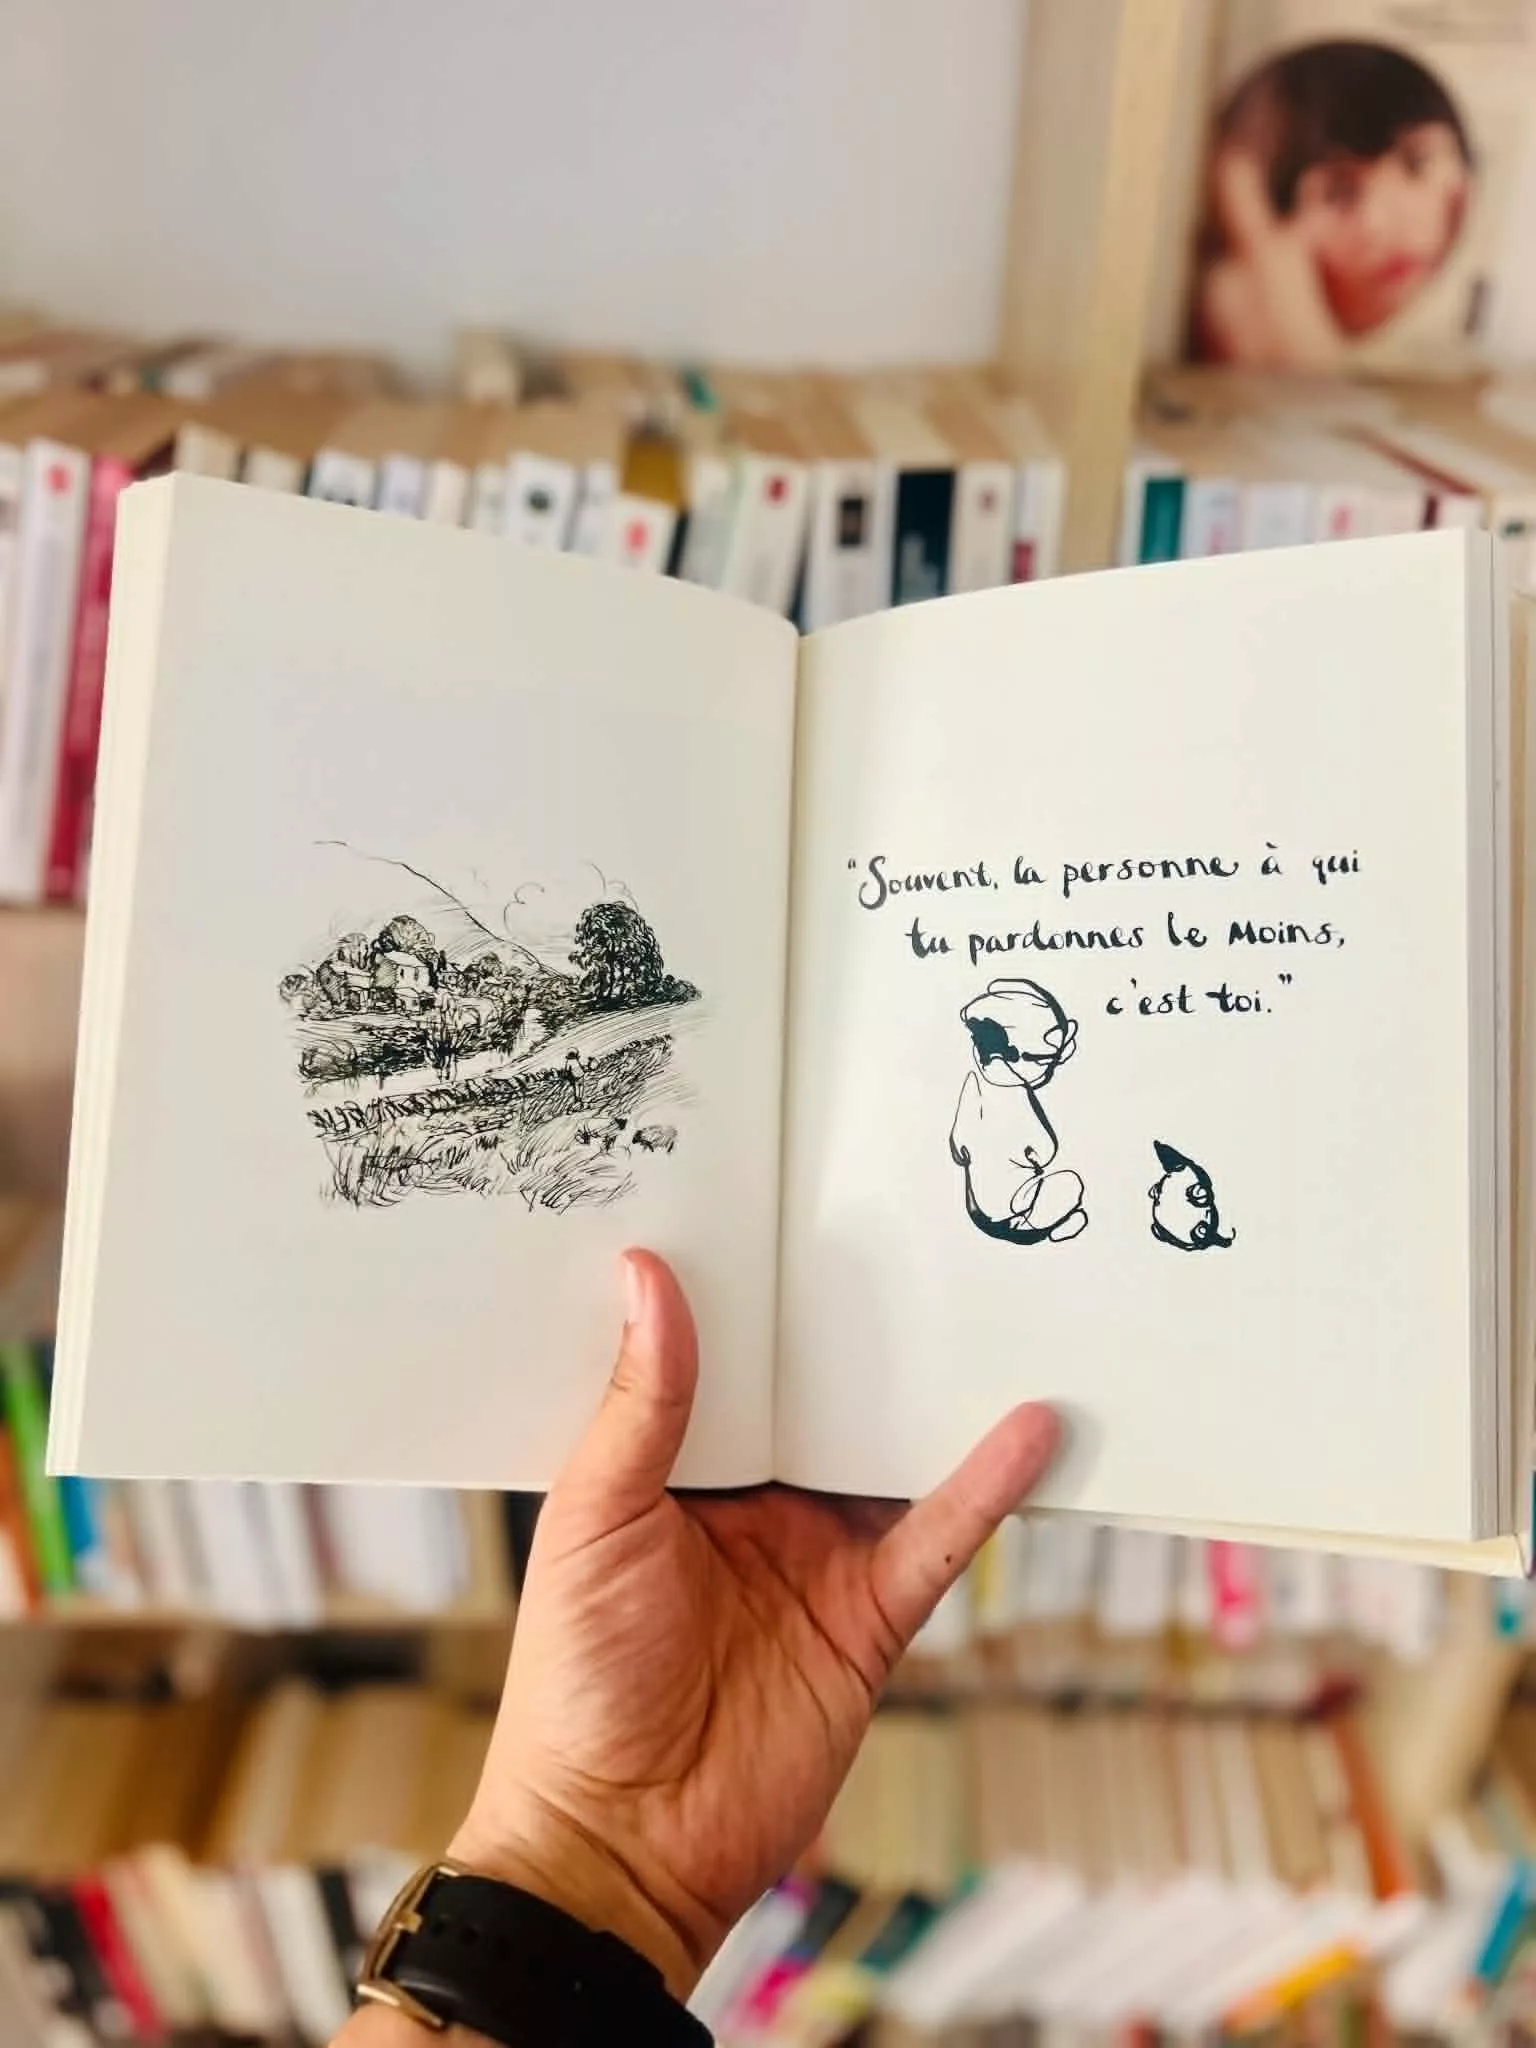 “Souvent, la personne à qui
tu pardonnes le moins,
c'est toi.”